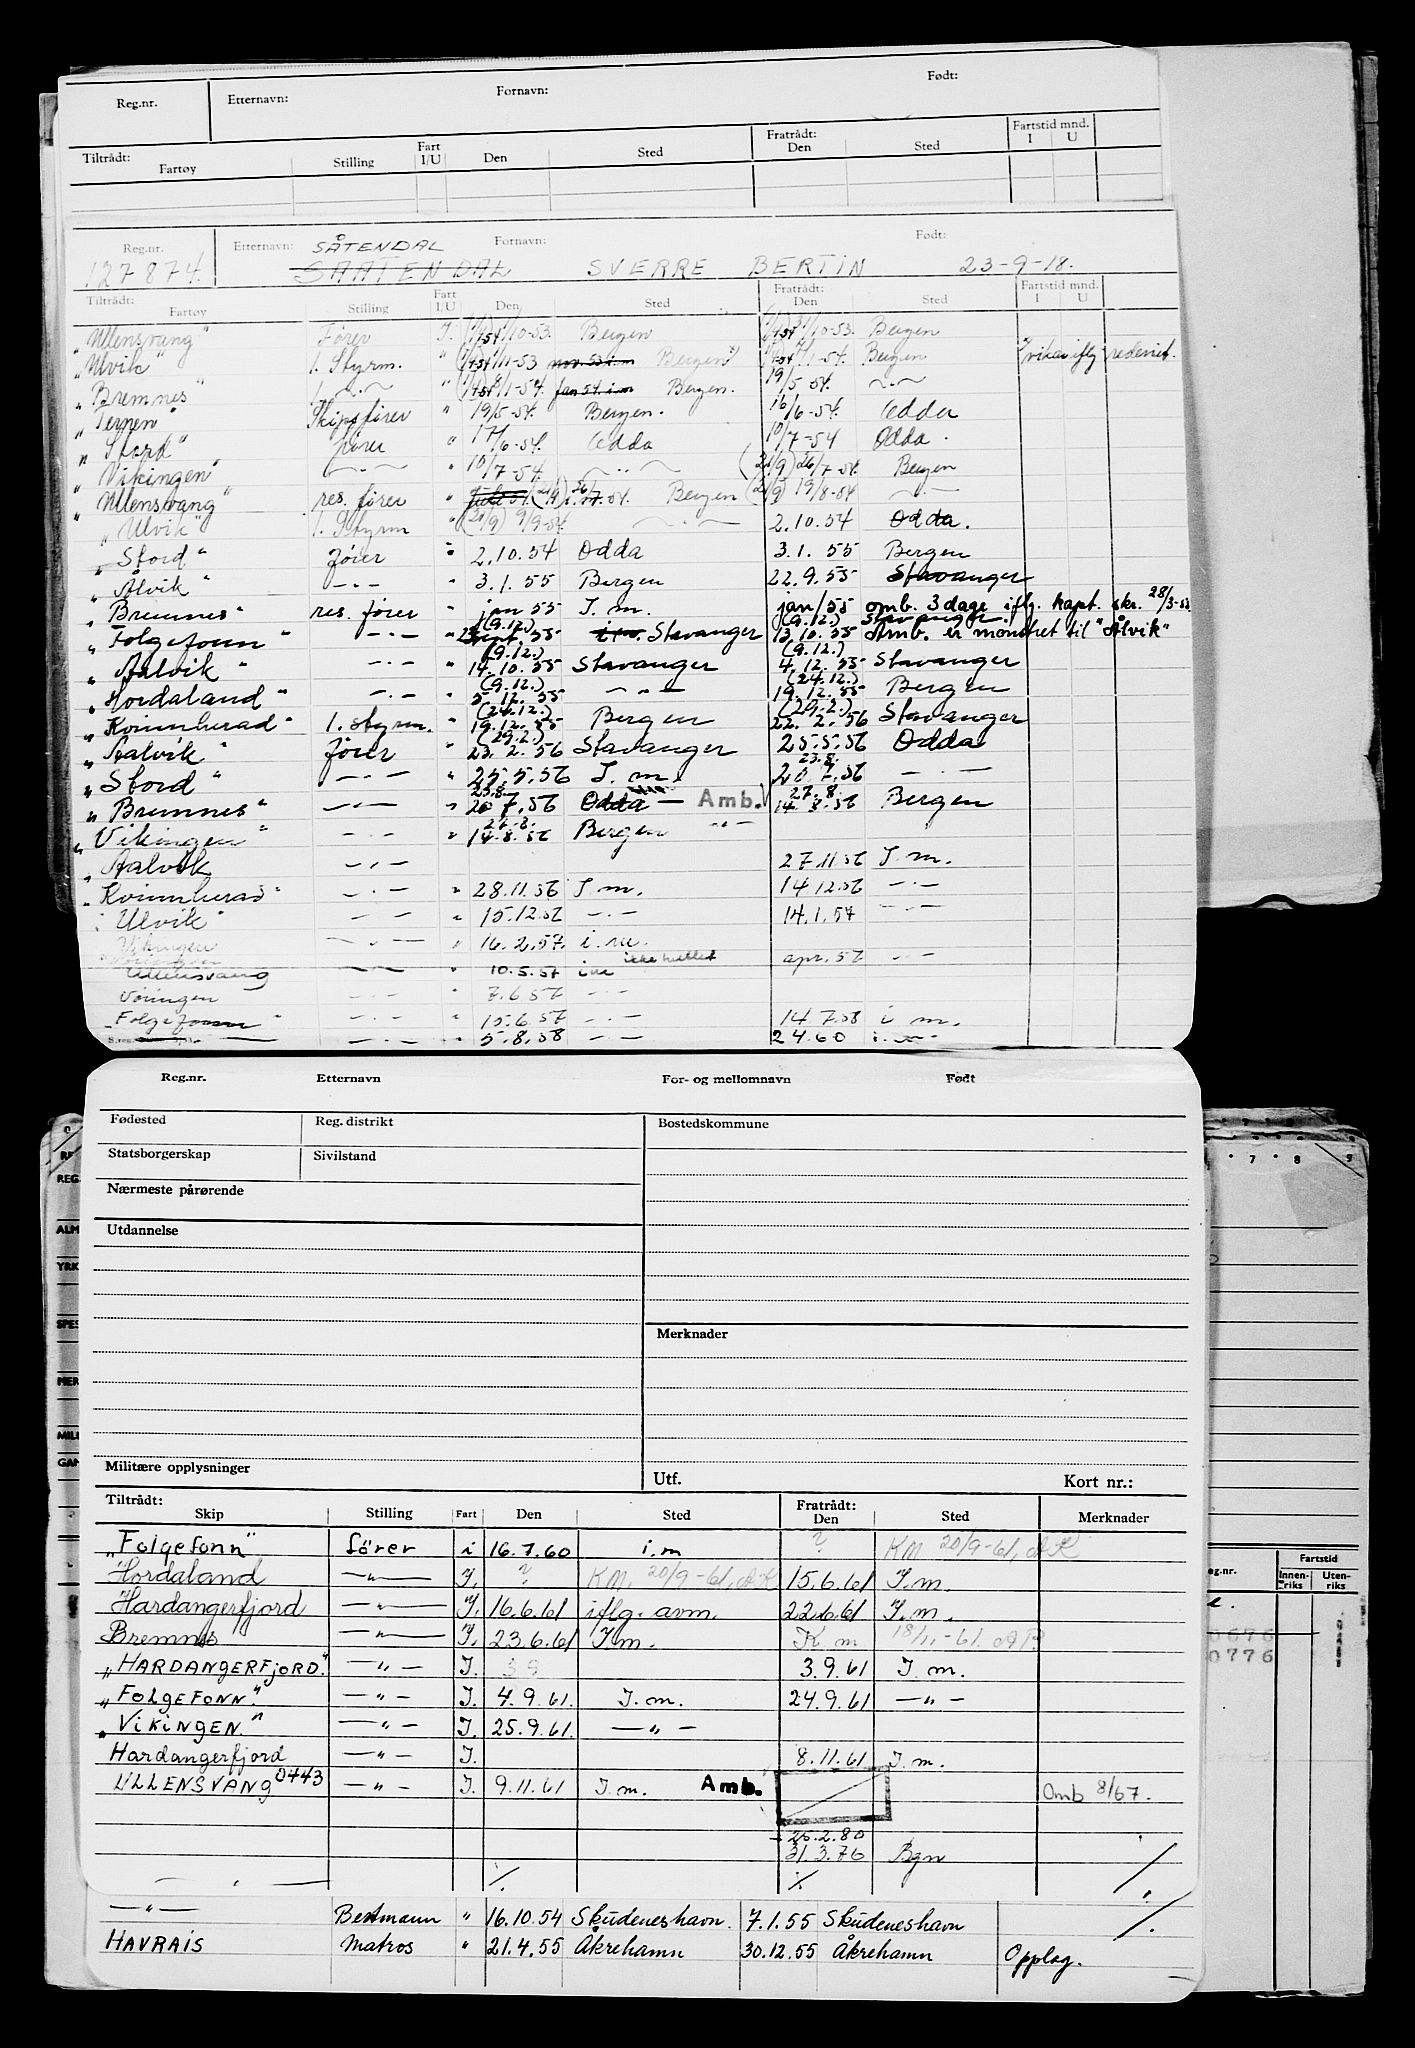 Reg.nr. Etternavn: Fornavn: Født:
Tiltrådt: Fartøy Stilling Fart I/U Den Sted Fratrådt: Den Sted Fartstid mnd. I U
Reg.nr. Etternavn: SÅTENDAL Fornavn: Født:
127874. SAATENDAL SVERRE BERTIN 23-9-18.
Tiltrådt: Fartøy Stilling Fart I/U Den Sted Fratrådt: Den Sted Fartstid mnd. I U
"Ullensvang" Fører I. 10-53. Bergen 10-53. Bergen
"Ulvik" 1. Styrm. " 11-53 nov. 53 i.m Bergen 1-54. Bergen
"Bremnes" 1. -"- " 1-54. jan 54 i.m Bergen. 19/5-54. -"-
"Ternen" Skipsfører " 19/5-54. Bergen. 16/6-54. Odda
"Stord" fører " 17/6-54. Odda 10/7-54 Odda.
"Vikingen" -"- " 10/7-54. -"- (21/9) 26/7-54. Bergen
"Ullensvang" res. fører " (21/9) 26/7.54. Bergen (21/9) 19/8-54 -"-
"Ulvik" 1. Styrm " (21/9) 9/9-54. -"- 2.10.54 Odda.
"Stord" fører " 2.10.54 Odda 3.1.55 Bergen
"Ålvik" -"- " 3.1.55 Bergen 22.9.55 Stavanger
"Bremnes" res. fører " jan 55 I.m. jan/55 omb. 3 dage iflg. kapt. skr. 28/3-58
"Folgefonn" -"- " (9.12.) Stavanger (9.12.) 13.10.55 Stavanger. Amb. er mønstret til "Ålvik"
"Aalvik" -"- " (9.12.) 14.10.55 Stavanger (9.12.) 4.12.55 Stavanger
"Hordaland" -"- " (9.12.) 5.12.55 -"- (24.12.) 19.12.55 Bergen
"Kvinnherad" 1. styrm. " (24.12.) 19.12.55 Bergen (29.2.) 22.2.56 Stavanger
"Aalvik" fører " (29.2.) 23.2.56 Stavanger 25.5.56 Odda
"Stord" -"- " 25.5.56 I.m. 23.8. 20.7.56 -"-
"Bremnes" -"- " 23.8. 20.7.56 Odda - Amb. 27.8. 14.8.56 Bergen
"Vikingen" -"- " 27.8. 14.8.56 Bergen -"-
"Aalvik -"- 27.11.56 I.m.
"Kvinnherad" -"- " 28.11.56 I.m. 14.12.56 -"-
"Ulvik" -"- " 15.12.56 -"- 14.1.57 -"-
Vikingen -"- " 16.2.57. i.m.
Ullensvang -"- " 10.5.57 i.m ikke hullet apr. 57 -"-
Vøringen -"- " 7.6.57 -"-
"Folgefonn" -"- " 15.6.57 -"- 14.7.58 i m.
-"- " 5.8.58 -"- 2.4.60 i.m
Reg.nr. Etternavn For- og mellomnavn Født
Fødested Reg. distrikt Bostedskommune
Statsborgerskap Sivilstand
Nærmeste pårørende
Utdannelse
Merknader
Militære opplysninger Utf. Kort nr.:
Tiltrådt: Skip Stilling Fart Den Sted Fratrådt: Den Sted Merknader
"Folgefonn" fører i 16.7.60 i.m ? KM 20/9-61, AK
Hordaland -"- I. ? KM 20/9-61, AK 15.6.61 I.m.
Hardangerfjord -"- I. 16.6.61 iflg. avm. 22.6.61 I.m.
Bremnes -"- I. 23.6.61 I.m. K m 18/11-61.
"HARDANGERFJORD." -"- I. 3 9 3.9.61 I.m.
"FOLGEFONN." -"- I. 4.9.61. I.m. 24.9.61 -"-
"VIKINGEN." -"- I. 25.9.61. -"-
Hardangerfjord -"- I. 8.11.61 I.m.
ULLENSVANG 0443 -"- I. 9.11.61 I.m. Amb. Omb 8/67.
25.2.80
31.3.76 Bgn
-"- Bestmann " 16.10.54 Skudeneshavn. 7.1.55 Skudeneshavn
HAVRAIS Matros " 21.4.55 Åkrehamn 30.12.55 Åkrehamn Opplag.
REG
ALM
YRK
SPES
MER
MILI
GAN
7 8 9
eg.nr. Fartstid Innenriks Utenriks
0676
0776